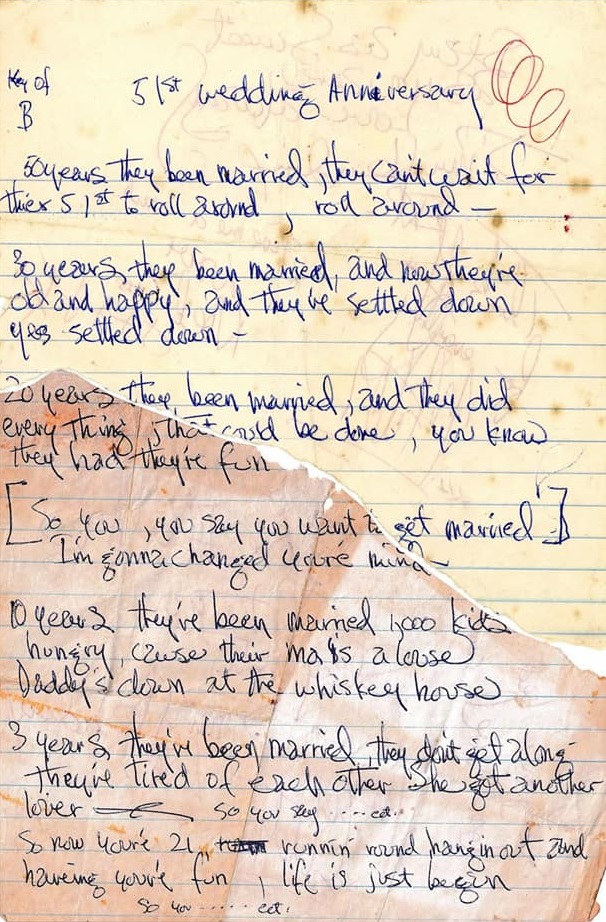 Key of
B
51st wedding Anniversary
50 years they been married, they can't wait for
thier 51st to roll around, roll around —
30 years, they been married, and now they're
old and happy, and they've settled down
yes settled down -
20 years they been married, and they did
every thing, that could be done, you know
they had they're fun
[So you, you say you want to get married]
I'm gonna changed you're mind -
10 years they've been married 1,000 kids
hungry, cause their ma is a louse
Daddy's down at the whiskey house
3 years they've been married, they don't get along
they're tired of each other she got another
lover — so you say ..... ect..
So now you're 21, runnin' round, hangin out and
haveing you're fun, life is just begin
So you ...... ect.